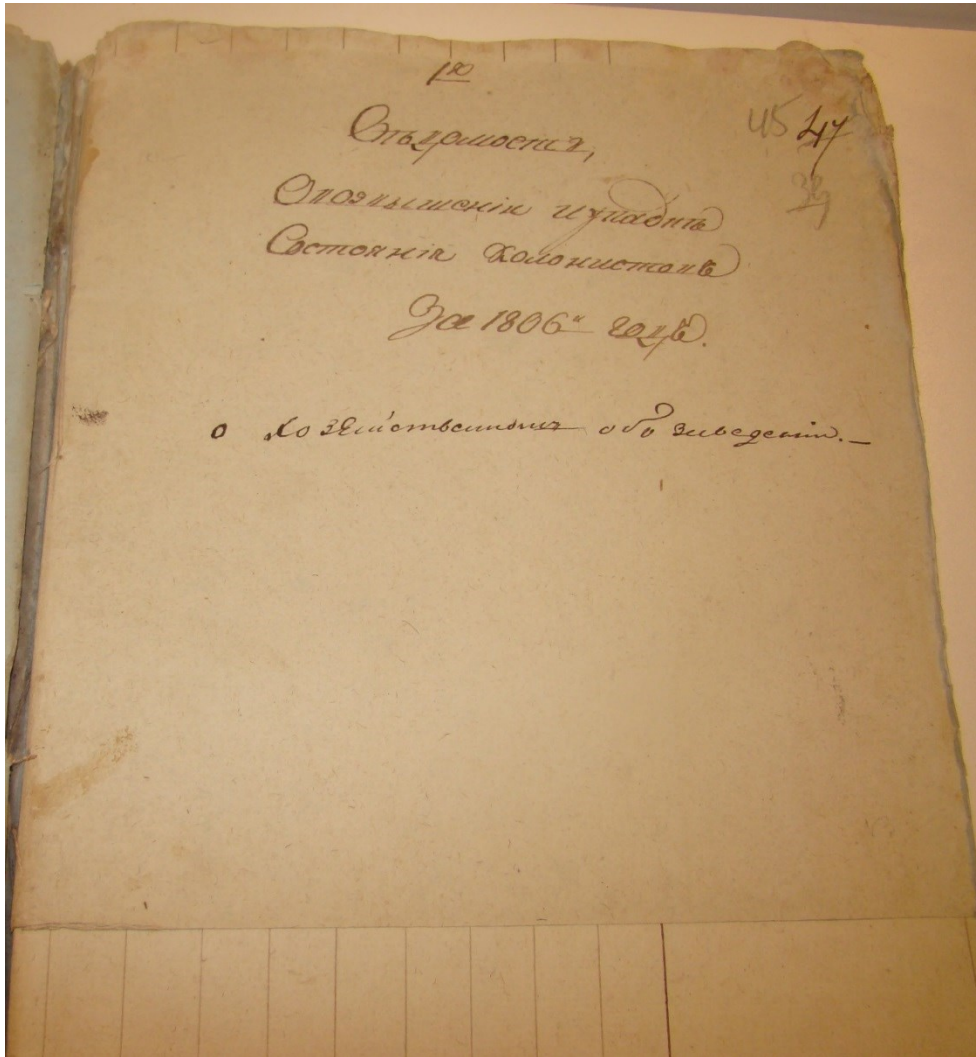 1ю
45 47
Вѣдомость,
39
О возвышеніи и упадкѣ
Состоянія Колонистовъ
За 1806й годъ.
о хозяйственномъ обзаведеніи.